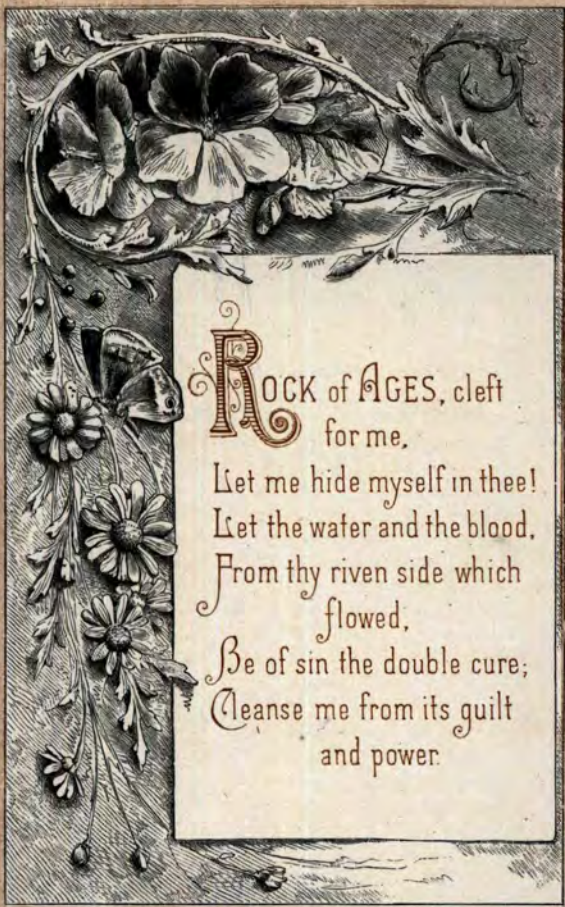 ROCK of AGES, cleft
for me,
Let me hide myself in thee!
Let the water and the blood,
From thy riven side which
flowed,
Be of sin the double cure;
Cleanse me from its guilt
and power.